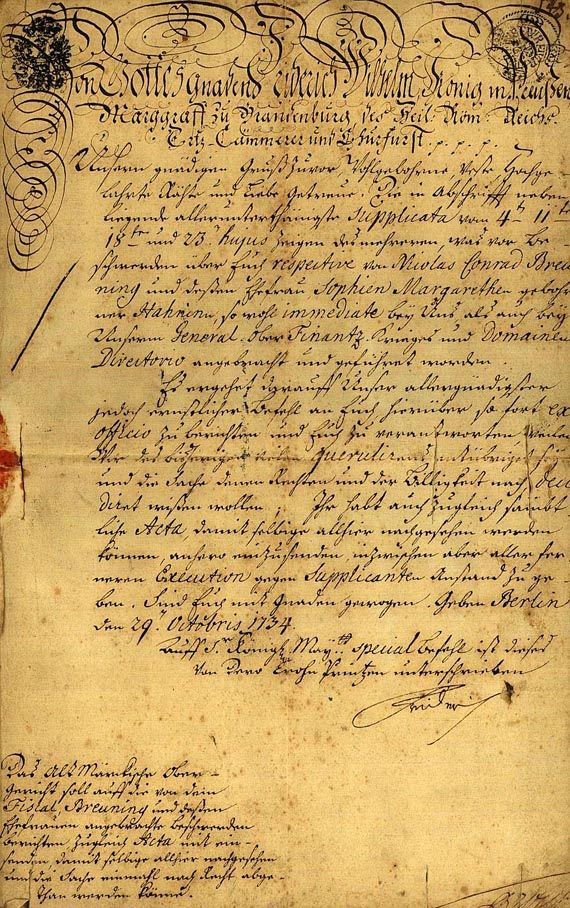 Von Gottes gnaden Friderich Wilhelm, König in Preußen
Marggraff zu Brandenburg, des Heil. Röm. Reichs
Ertz-Cämmerer und Churfürst. p. p. p. p.
Unsern gnädigen Gruß zuvor, Veste, Hochge-
lahrte Räthe und Liebe Getreue. Die in Abschrifft neben-
liegende allerunterthänigste Supplicata vom 4ten 11ten
18ten und 23ten hujus zeigen des mehreren, was vor Be-
schwerden über Euch respective von Nicolas Conrad Breu-
ning und deßen Ehefrau Sophien Margarethen gebohr-
ner Hahnen, so wohl immediate bey Uns als auch bey
Unserm General-Ober-Finantz-Krieges und Domainen
Directorio angebracht und geführet worden
Es ergehet darauff Unser allergnädigster
jedoch ernstlicher Befehl an Euch hierüber so fort ex
officio zu berichten und Euch zu verantworten weilen
Wir des bißherigen Querulirens entübriget seyn
und die Sache denen Rechten und der Billigkeit nach deci-
diret wißen wollen, Ihr habt auch zugleich sämbt-
liche Acta, damit selbige allhier nachgesehen werden
können, anhero einzusenden, inzwischen aber aller fer-
neren Execution gegen Supplicanten Anstand zu ge-
ben. Sind Euch mit Gnaden gewogen. Geben Berlin
den 29t Octobris 1734
Auff Sr Königl. Mayt. special Befehl ist dieses
von dero Crohn Printzen unterschrieben
Friderich
Das Alt Märckische Ober-
Gericht soll auff die von dem
Fiscal Breuning und deßen
Ehefrauen angebrachte beschwerden
berichten zugleich Acta mit ein-
senden, damit selbige allhier nachgesehen
und die Sache einmahl nach Recht abge-
than werden könne.